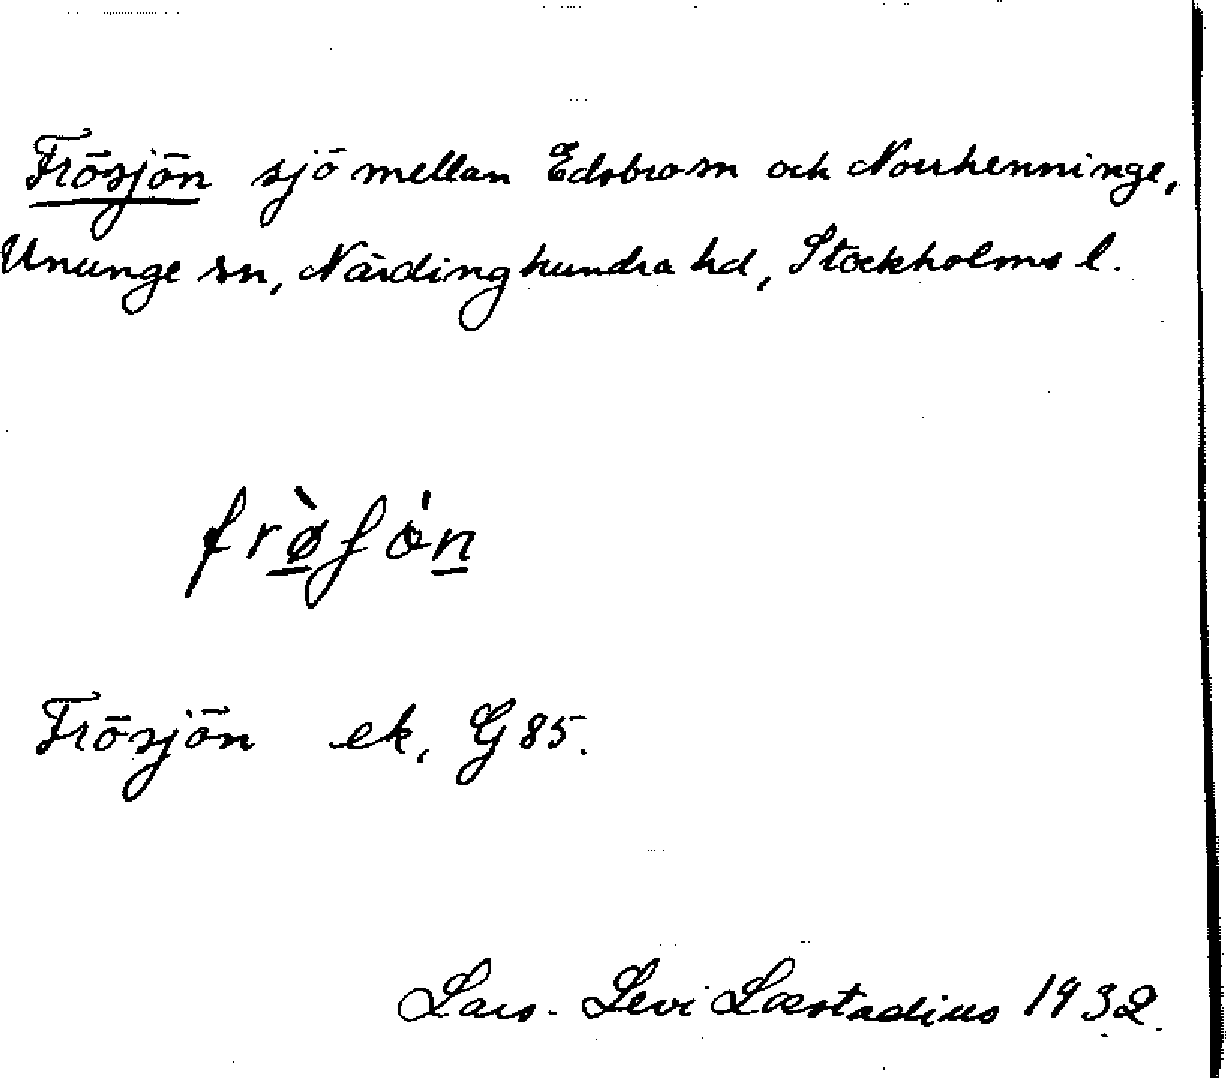 Frösjön sjö mellan Edsbro sn och Norrhenninge,
Ununge sn, Närdinghundra hd, Stockholms l.
frø̀ʃɵ́n
Frösjön ek. G 85.
Lars-Levi Læstadius 1932.